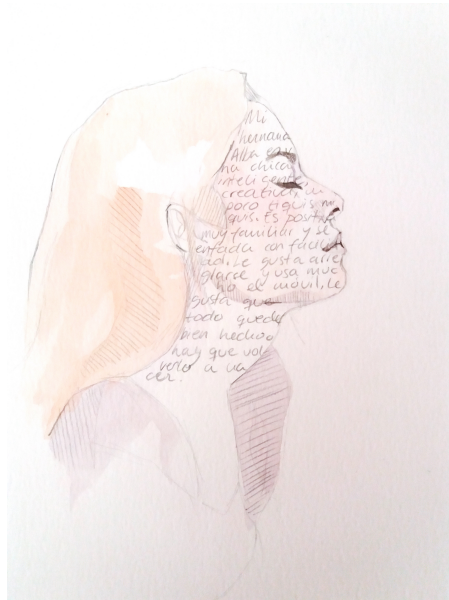 Mi
hermana
Alba es u
na chica
inteligente,
creativa, un
poro tiquis mi
quis. Es positiva
muy familiar y se
enfada con facili
dad. Le gusta arre
glarse y usa muc
ho el móvil. Le
gusta que
todo quede
bien hecho o
hay que vol
verlo a ha
cer.